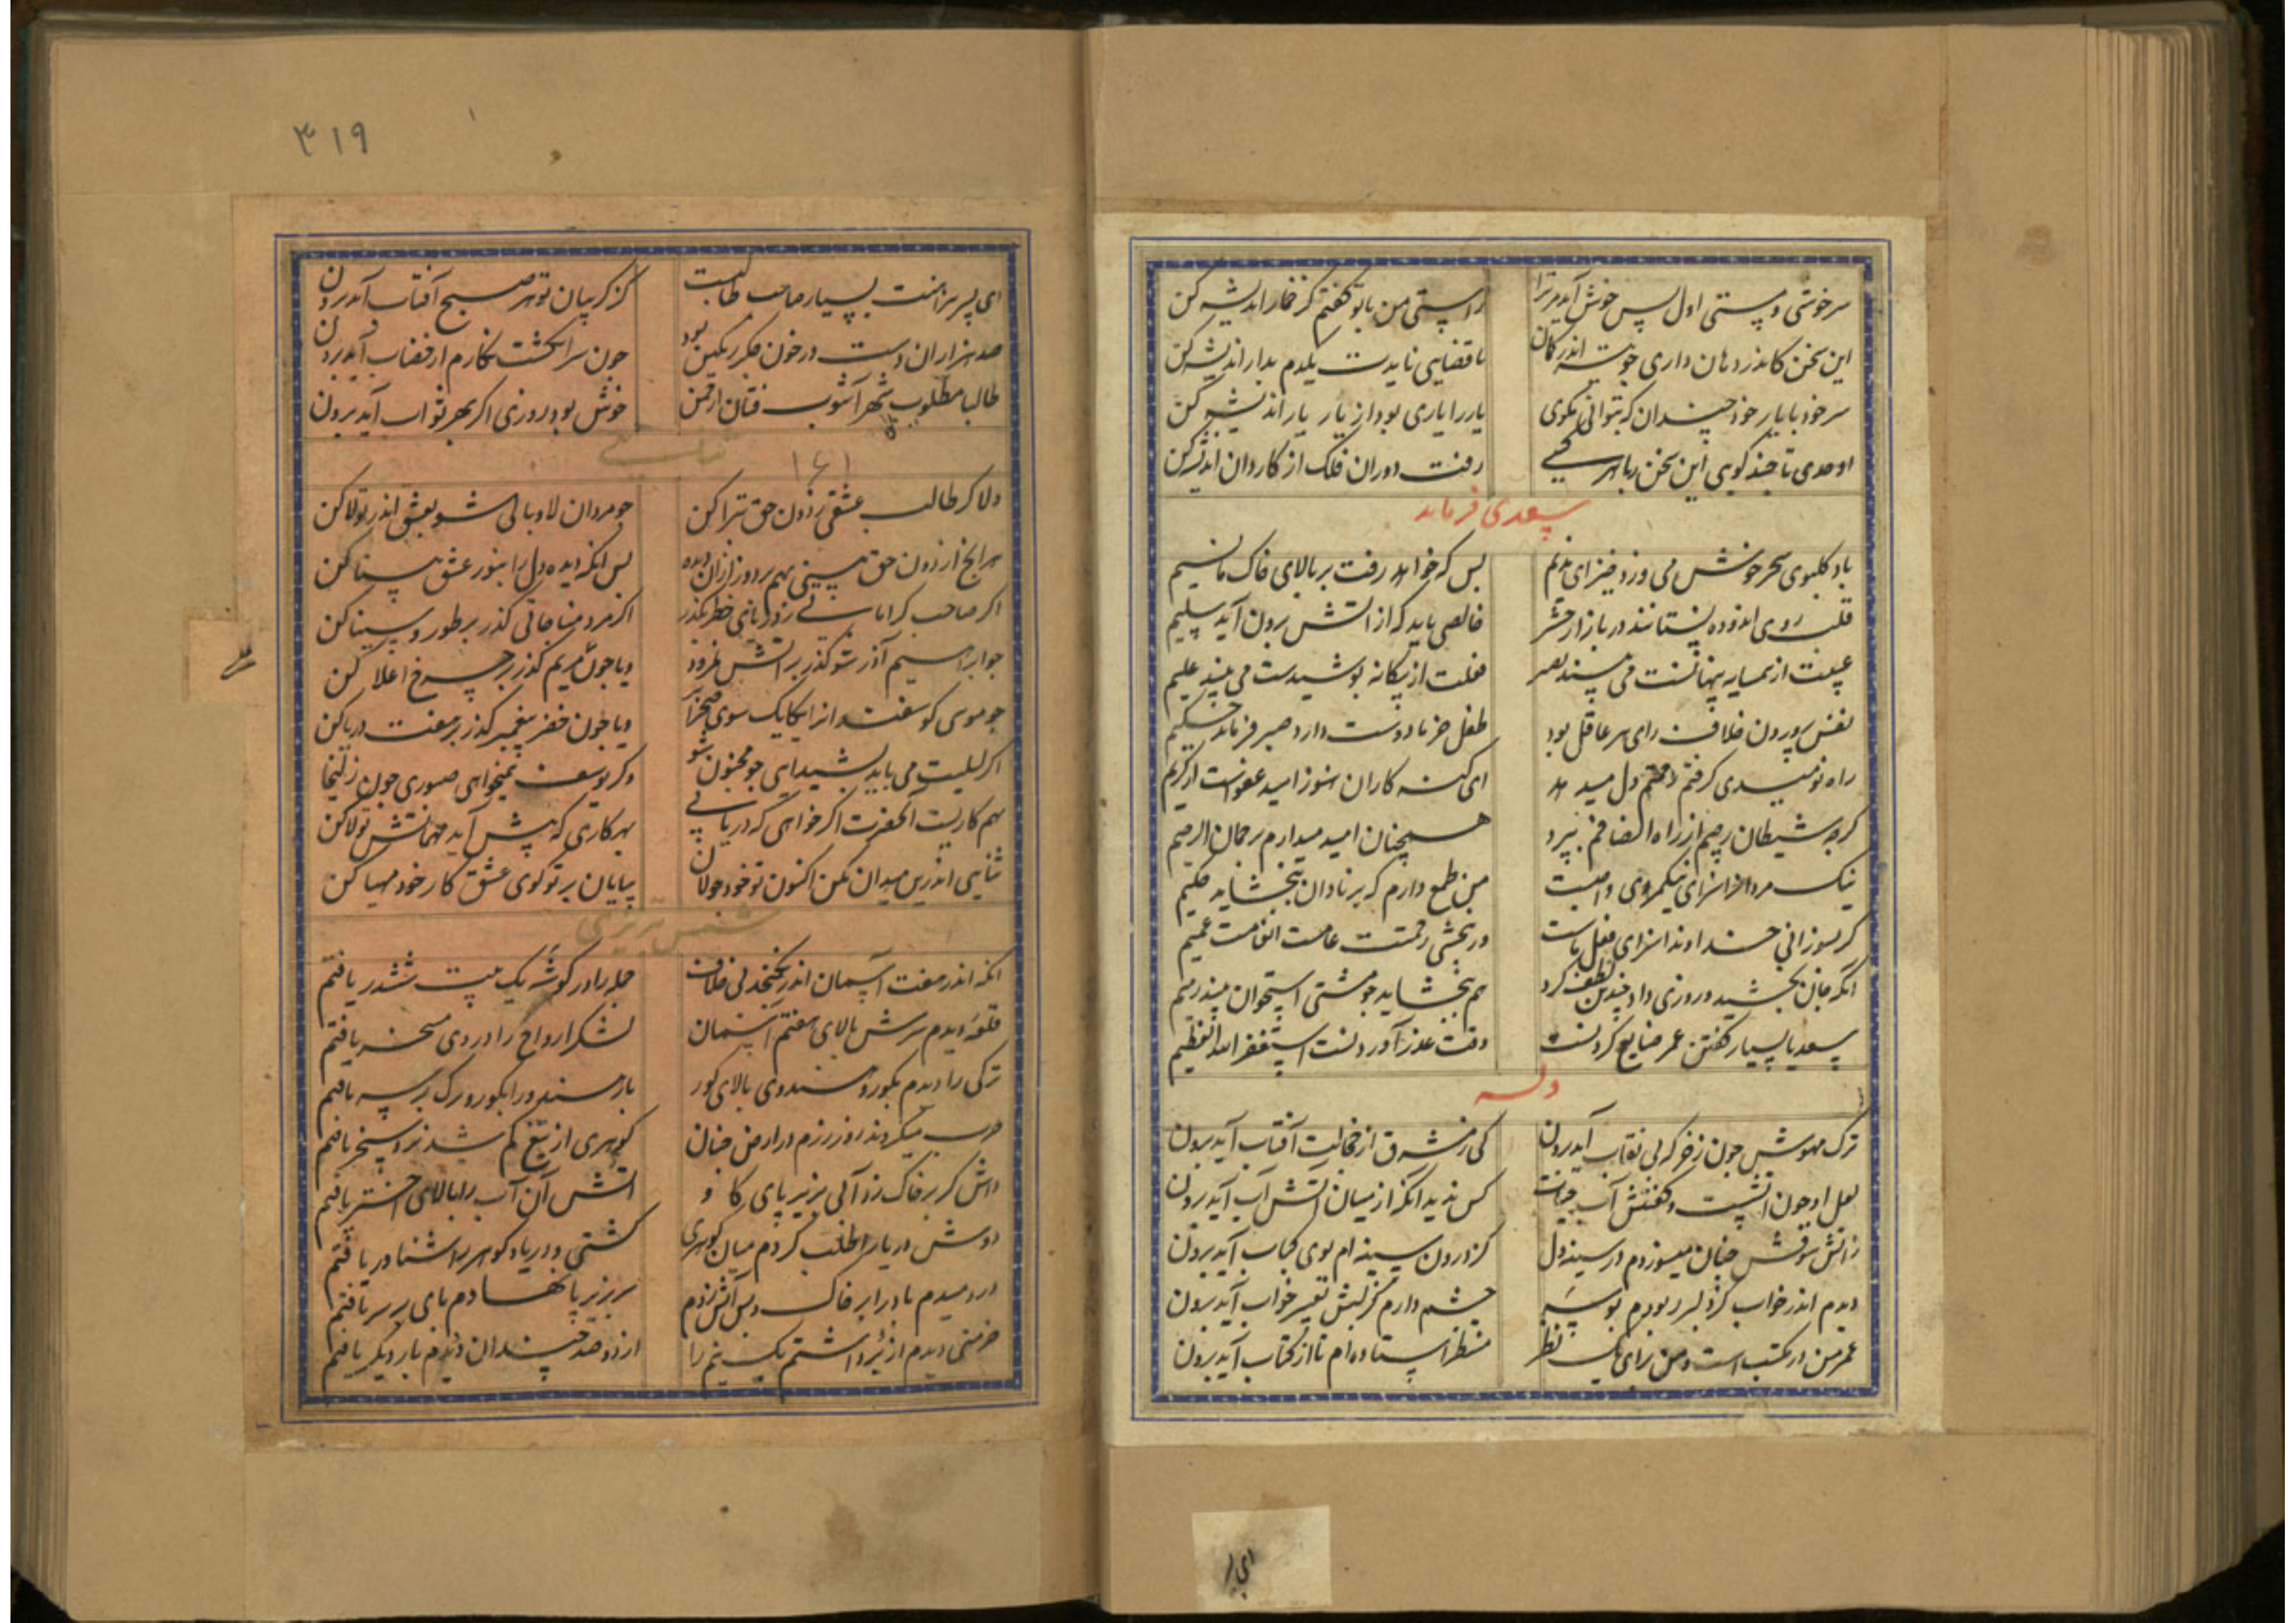 سرخوشی و مستی اول پس خوش آید مر ترا راستی من با تو گفتم کز خمار اندیشه کن
این سخن کاندر دهان داری چو نیست اندر کمان تا قضایی نایدت یکدم بدار اندیشه کن
سر خود با یار خود چندان که بتوانی مگوی یار را یاری بود از یار یار اندیشه کن
اوحدی تا چند گویی این سخن با هر کسی رفت دوران فلک از کار دان اندیشه کن
سعدی فرماید
باد گلبوی سحر خوش می وزد خیز ای ندیم بس که خواهد رفت بر بالای خاک ما نسیم
قلب روی اندوده نستانند در بازار حشر خالصی باید که از آتش برون آید سلیم
عیبت از همسایه پنهانست می بیند بصیر فعلت از بیگانه پوشیدست می بیند علیم
نفس پروردن خلاف رای هر عاقل بود طفل خرما دوست دارد صبر فرماید حکیم
راه نومیدی گرفتم رحمتم دل میدهد ای گنه کاران هنوز امید عفوست از کریم
گرچه شیطان رجیم از راه انصافم ببرد همچنان امید میدارم برحمان الرحیم
نیک مردانرا سزای نیکمردی واجبست من طمع دارم که بر نادان ببخشاید حکیم
گر بسوزانی خداوندا سزای فعل ماست ور ببخشی رحمتت عامست انعامت عمیم
آنکه جان بخشید و روزی داد و چندین لطف کرد هم ببخشاید چو مشتی استخوان بیند رمیم
سعدیا بسیار گفتن عمر ضایع کردنست وقت عذر آوردنست استغفر الله العظیم
وله
ترک مهوش چون زخر که بی نقاب آید برون کی ز مشرق از خجالت آفتاب آید برون
لعل او چون آتشیست و گفتنش آب حیات کس ندید آنکز میان آتش آب آید برون
ز آتش شوقش چنان میسوزدم در سینه دل کز درون سینه ام بوی کباب آید برون
دیدم اندر خواب کز دلبر ربودم بوسه چشم دارم کز لبش تعبیر خواب آید برون
عمر من در مکتب است و من برای یک نظر منتظر استاده ام تا از کتاب آید برون
۳۱۹
ای پسر منت بسیار صاحب طالبست کز گریبان تو هر صبح آفتاب آید برون
صد هزاران دست در خون جگر رنگین بود چون سر انگشت نگارم از خضاب آید برون
طالبا مطلوب شهر آشوب فتان از چمن خوش بود روزی اگر بهر ثواب آید برون
۱۶۱
دلا گر طالب عشقی ز دون حق تبرا کن چو مردان لاوبالی شو بعشق اندر تولا کن
هر آنچ از دون حق بینی بهم بردوز ازان دیده پس آنگه دیده دل را بنور عشق بینا کن
اگر صاحب کراماتی خطر بگذر اگر مرد مناجاتی گذر بر طور و سینا کن
چو ابراهیم آذر شو گذر بر آتش نمرود و یا چون مریم گذر بر چرخ اعلا کن
چو موسی گوسفند انرا یکایک سوی صحرا و یا چون خضر پیغمبر گذر بر هفت دریا کن
اگر لیلیت می باید بشیدایی چو مجنون شو و گر یوسف نمیخواهی صبوری چون زلیخا
بهم کاریست آنحضرت اگر خواهی که دریابی بهر کاری که پیش آید تولا کن
ثنایی اندرین میدان مکن اکنون تو خود جولان بپایان بر تو گوی عشق کار خود مهیا کن
شمس تبریزی
آنکه اندر هفت آسمان اندر نگنجد بی خلاف جمله را در گوشه یک بیت ششدر یافتم
قلعه دیدم سرش بالای هفتم آسمان لشکر ارواح را در وی مسخر یافتم
ترکی را دیدم بگور و هندوی بالای گور باز هندو را بگور و ترک بر سر یافتم
حرب میکردند روز رزم در ارض جنان گوهری از تیغ
دانش گر بر خاک زد آبی بزیر پای گاو آتش آن آب را بالای اختر یافتم
دوش دریا را طلب کردم میان گوهری کشتی و دریا و گوهر را شناور یافتم
در دمیدم باد را بر خاک و پس آتش زدم سر بزیر پا نهادم پای بر سر یافتم
خرمنی دیدم ازو برداشتم یک نیم را از دو صد چندان دیدم بار دیگر یافتم